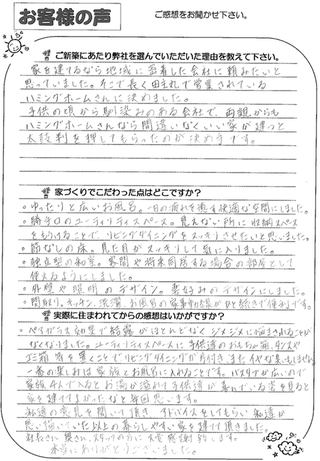 お客様の声
ご感想をお聞かせ下さい。
ご新築にあたり弊社を選んでいただいた理由を教えて下さい。
家を建てるなら地域に密着した会社に頼みたいと
思っていました。そこで長く田主丸で営業されている
ハミングホームさんに決めました。
子供の頃から馴染みのある会社で、両親からも
ハミングホームさんなら間違いなくいい家が建つと
太鼓判を押してもらったのが決め手です。
家づくりでこだわった点はどこですか？
・ゆったりと広いお風呂。一日の疲れを癒す快適な空間にしました。
・勝手口のユーティリティスペース。見えない所に収納スペース
をもうけることで、リビングダイニングをスッキリさせたいと思いました。
・節なしの床。見た目がスッキリして気に入りました。
・独立型の和室。客間や将来同居する場合の部屋として
使えるようにしました。
・外壁や照明のデザイン。素好みのデザインにしました。
・間取り。キッチン、洗濯、お風呂の家事動線がひと続きで便利です。
実際に住まわれてからの感想はいかがですか？
・ペアガラス効果で結露がほとんどなくジメジメに悩まされることが
なくなりました。ユーティリティスペースに子供達のおもちゃ箱、タンスや
ゴミ箱等を置くことでリビングダイニングが片付き
一番の楽しみは家族とお風呂に入れることです。バスタイムが広いので
家族4人で入るとお湯が溢れて子供達が喜んでいる姿を見ると
家を建ててよかったなと毎回思います。
私達の意見を聞いて頂き、アドバイスをしてもらい私達が
思い描いていた以上の暮らしやすい家を建てて頂きました。
社長さん、奥さん、スタッフの方に大変感謝致します。
本当にありがとうございました。